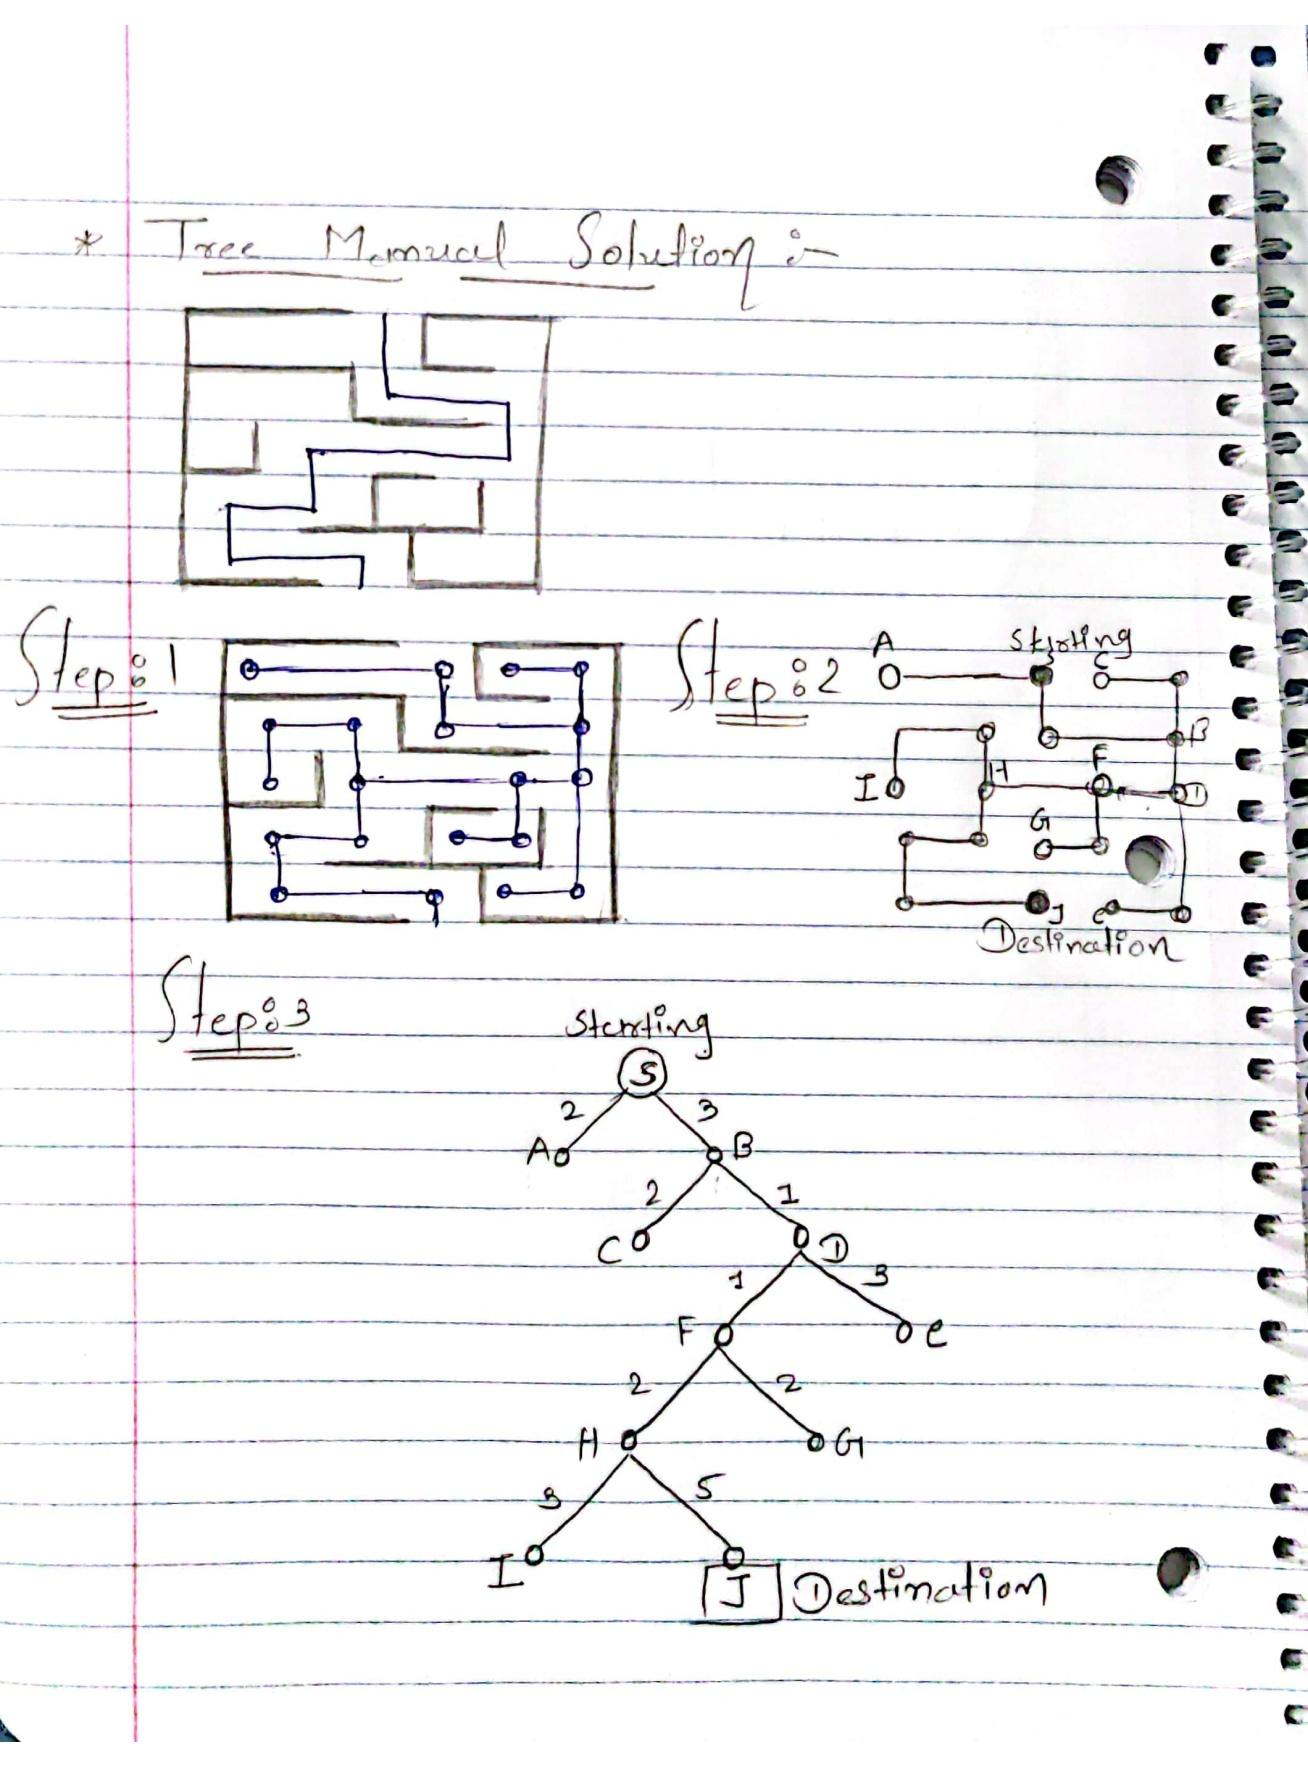 * Tree Manual Solution :-
Step:1
Step:2
A
Starting
S
C
B
I
H
F
D
G
J
e
Destination
Step:3
Starting
S
2 3
A B
2 1
C D
1 3
F e
2 2
H G
3 5
I J Destination